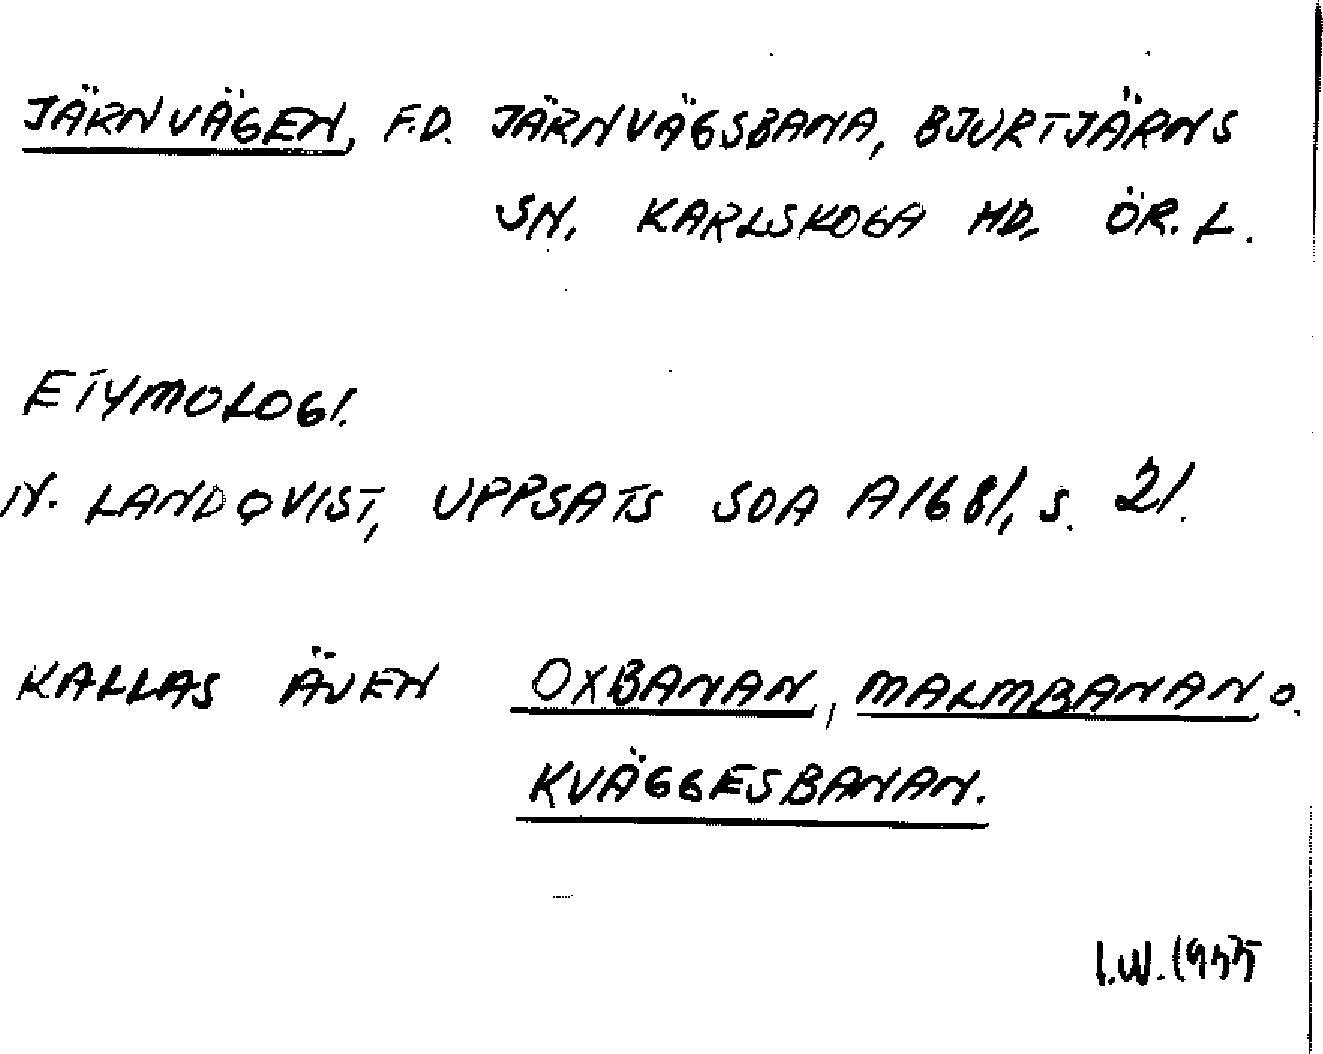 JÄRNVÄGEN, F.D. JÄRNVÄGSBANA, BJURTJÄRNS
SN, KARLSKOGA HD, ÖR. L.
ETYMOLOGI.
N. LANDQVIST, UPPSATS SOA A1681, S. 21.
KALLAS ÄVEN OXBANAN, MALMBANAN O.
KVÄGGESBANAN.
I.W.